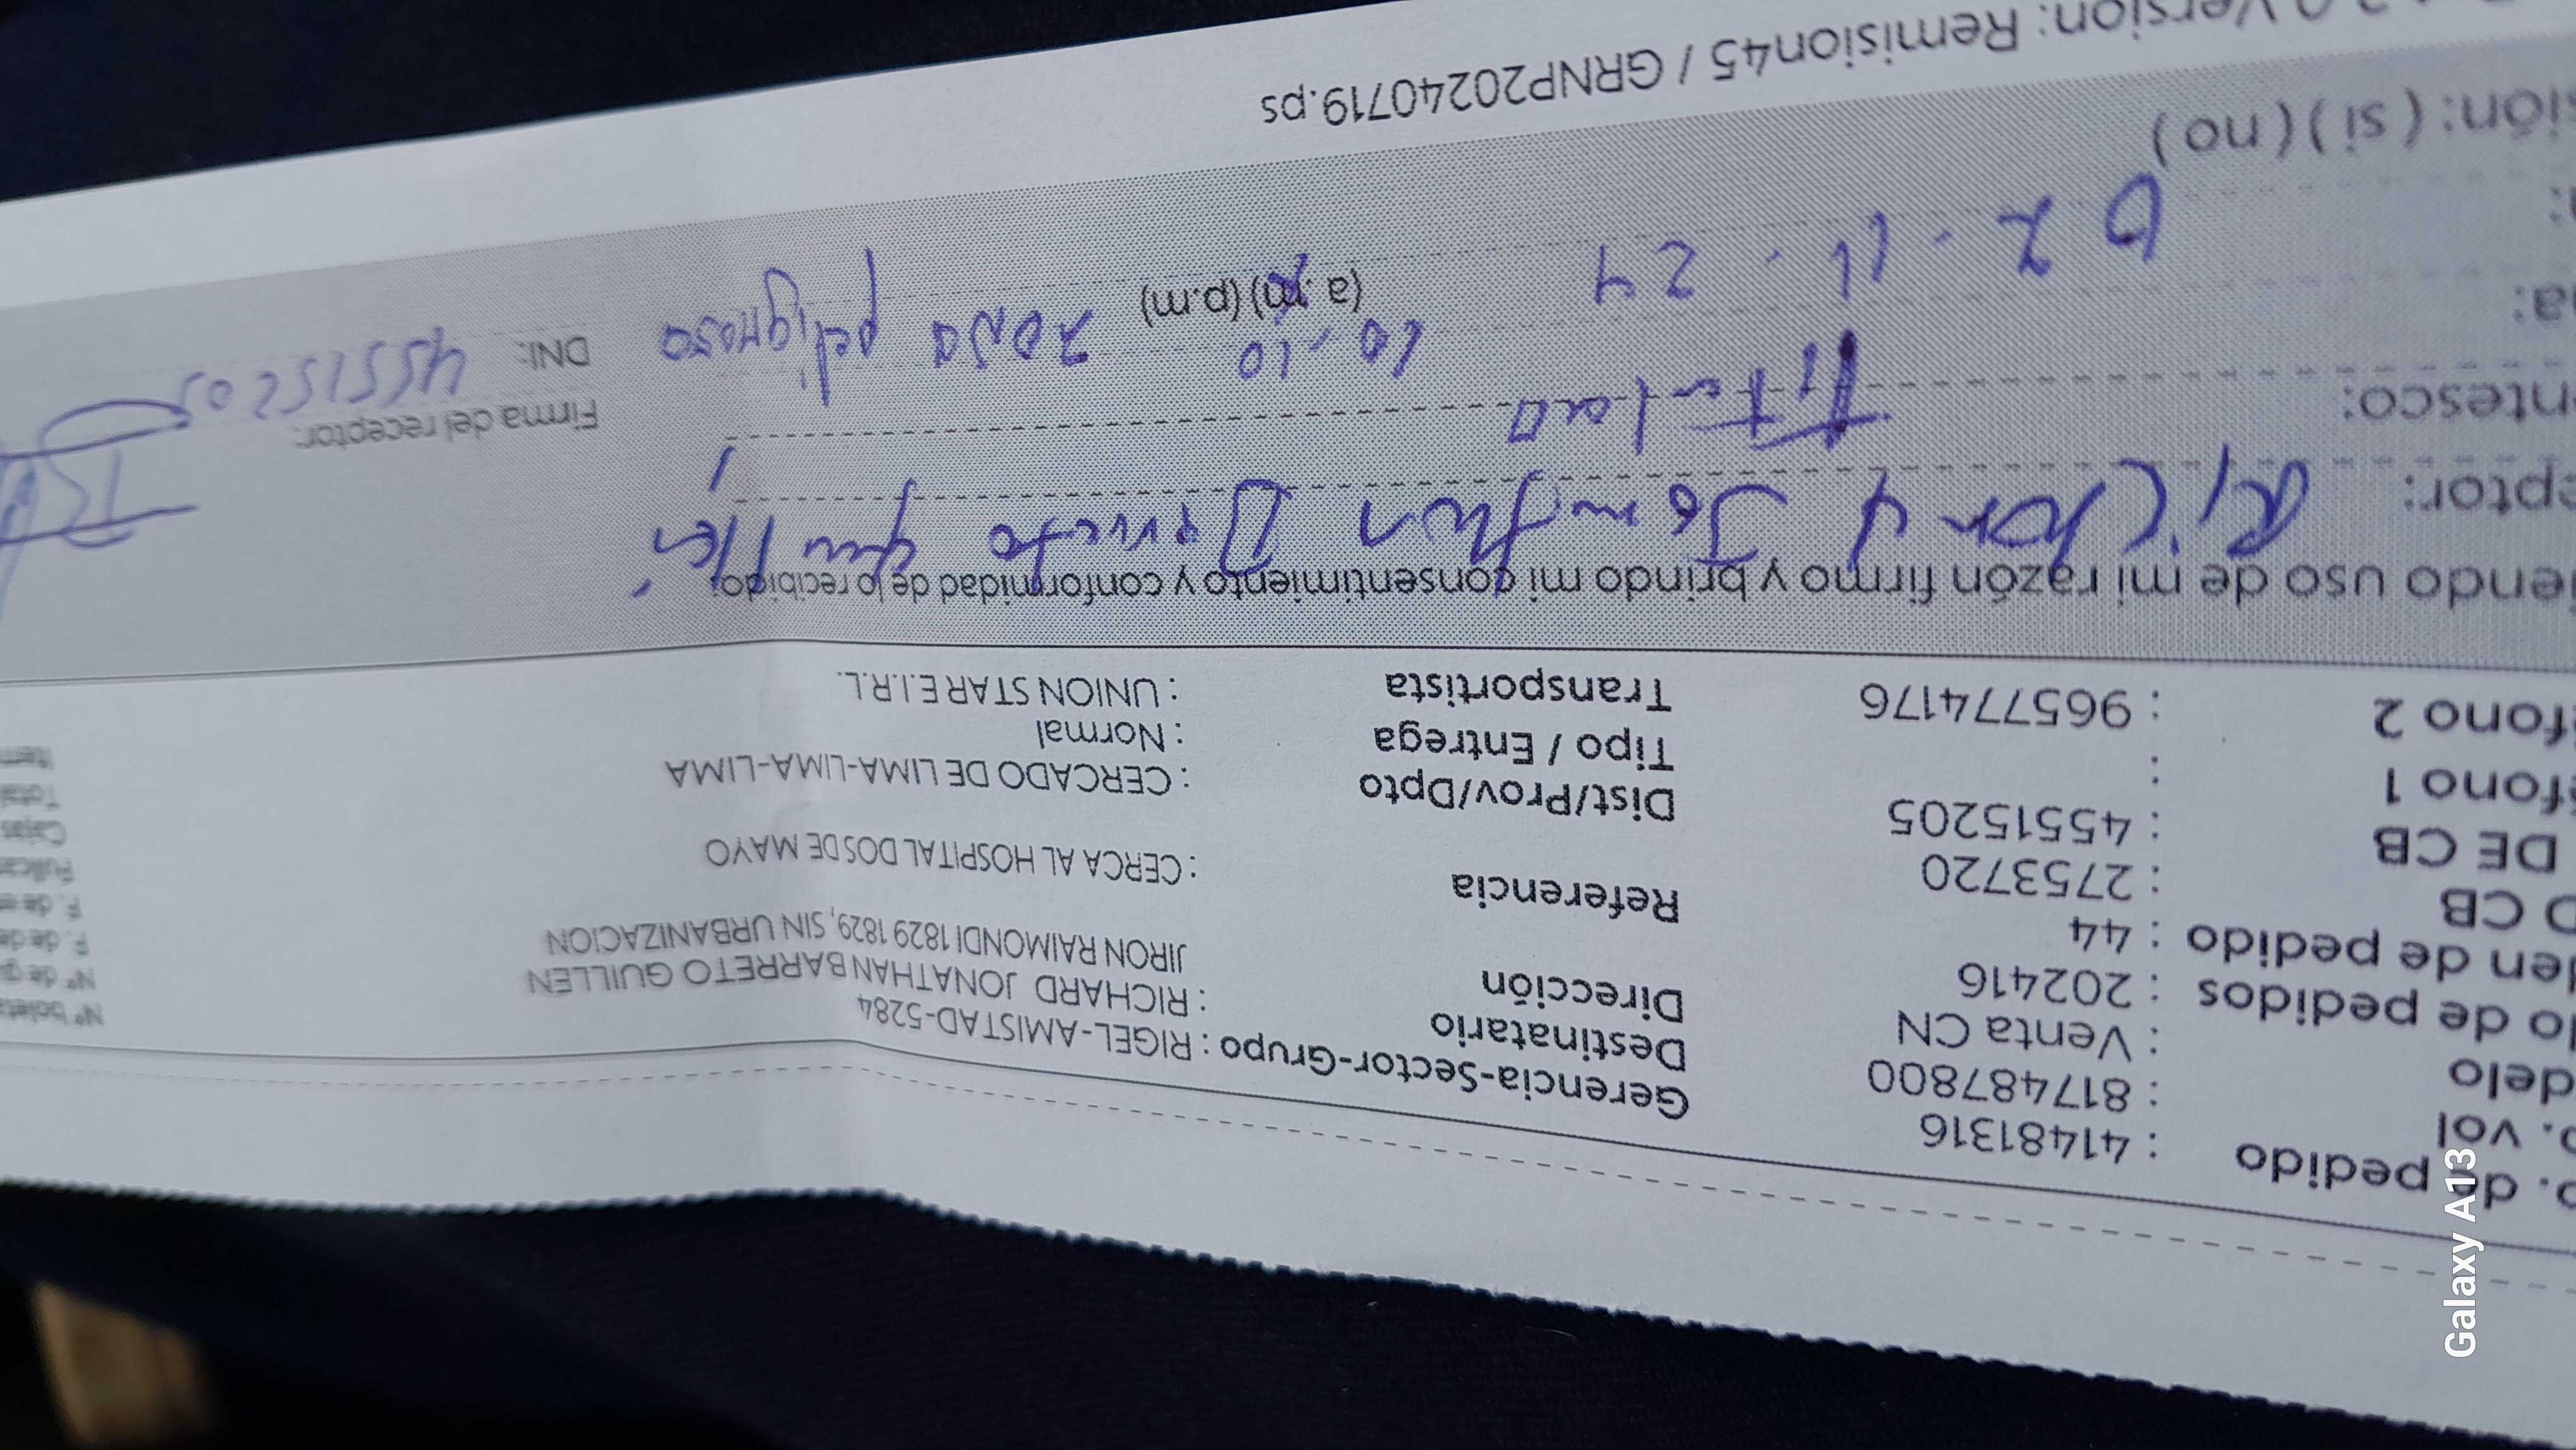 . de pedido : 41481316
. vol : 817487800
delo : Venta CN
lo de pedidos : 202416
den de pedido : 44
O CB : 2753720
DE CB : 45515205
éfono 1 :
éfono 2 : 965774176
Gerencia-Sector-Grupo : RIGEL-AMISTAD-5284
Destinatario : RICHARD JONATHAN BARRETO GUILLEN
Dirección JIRON RAIMONDI 1829 1829, SIN URBANIZACION
Referencia : CERCA AL HOSPITAL DOS DE MAYO
Dist/Prov/Dpto : CERCADO DE LIMA-LIMA-LIMA
Tipo / Entrega : Normal
Transportista : UNION STAR E.I.R.L.
Nº boleta
Nº de gu
F. de de
F. de en
Fullcar
Cajas
Total
Item
iendo uso de mi razón firmo y brindo mi consentimiento y conformidad de lo recibido.
eptor: Richard Jonathan Barreto Guillén
ntesco: Titular
Firma del receptor:
a: 02 - 11 - 24 10-10 (a.m) (p.m) zona peligrosa DNI: 45515205
ión: ( si ) ( no )
Version: Remision45 / GRNP20240719.ps
Galaxy A13